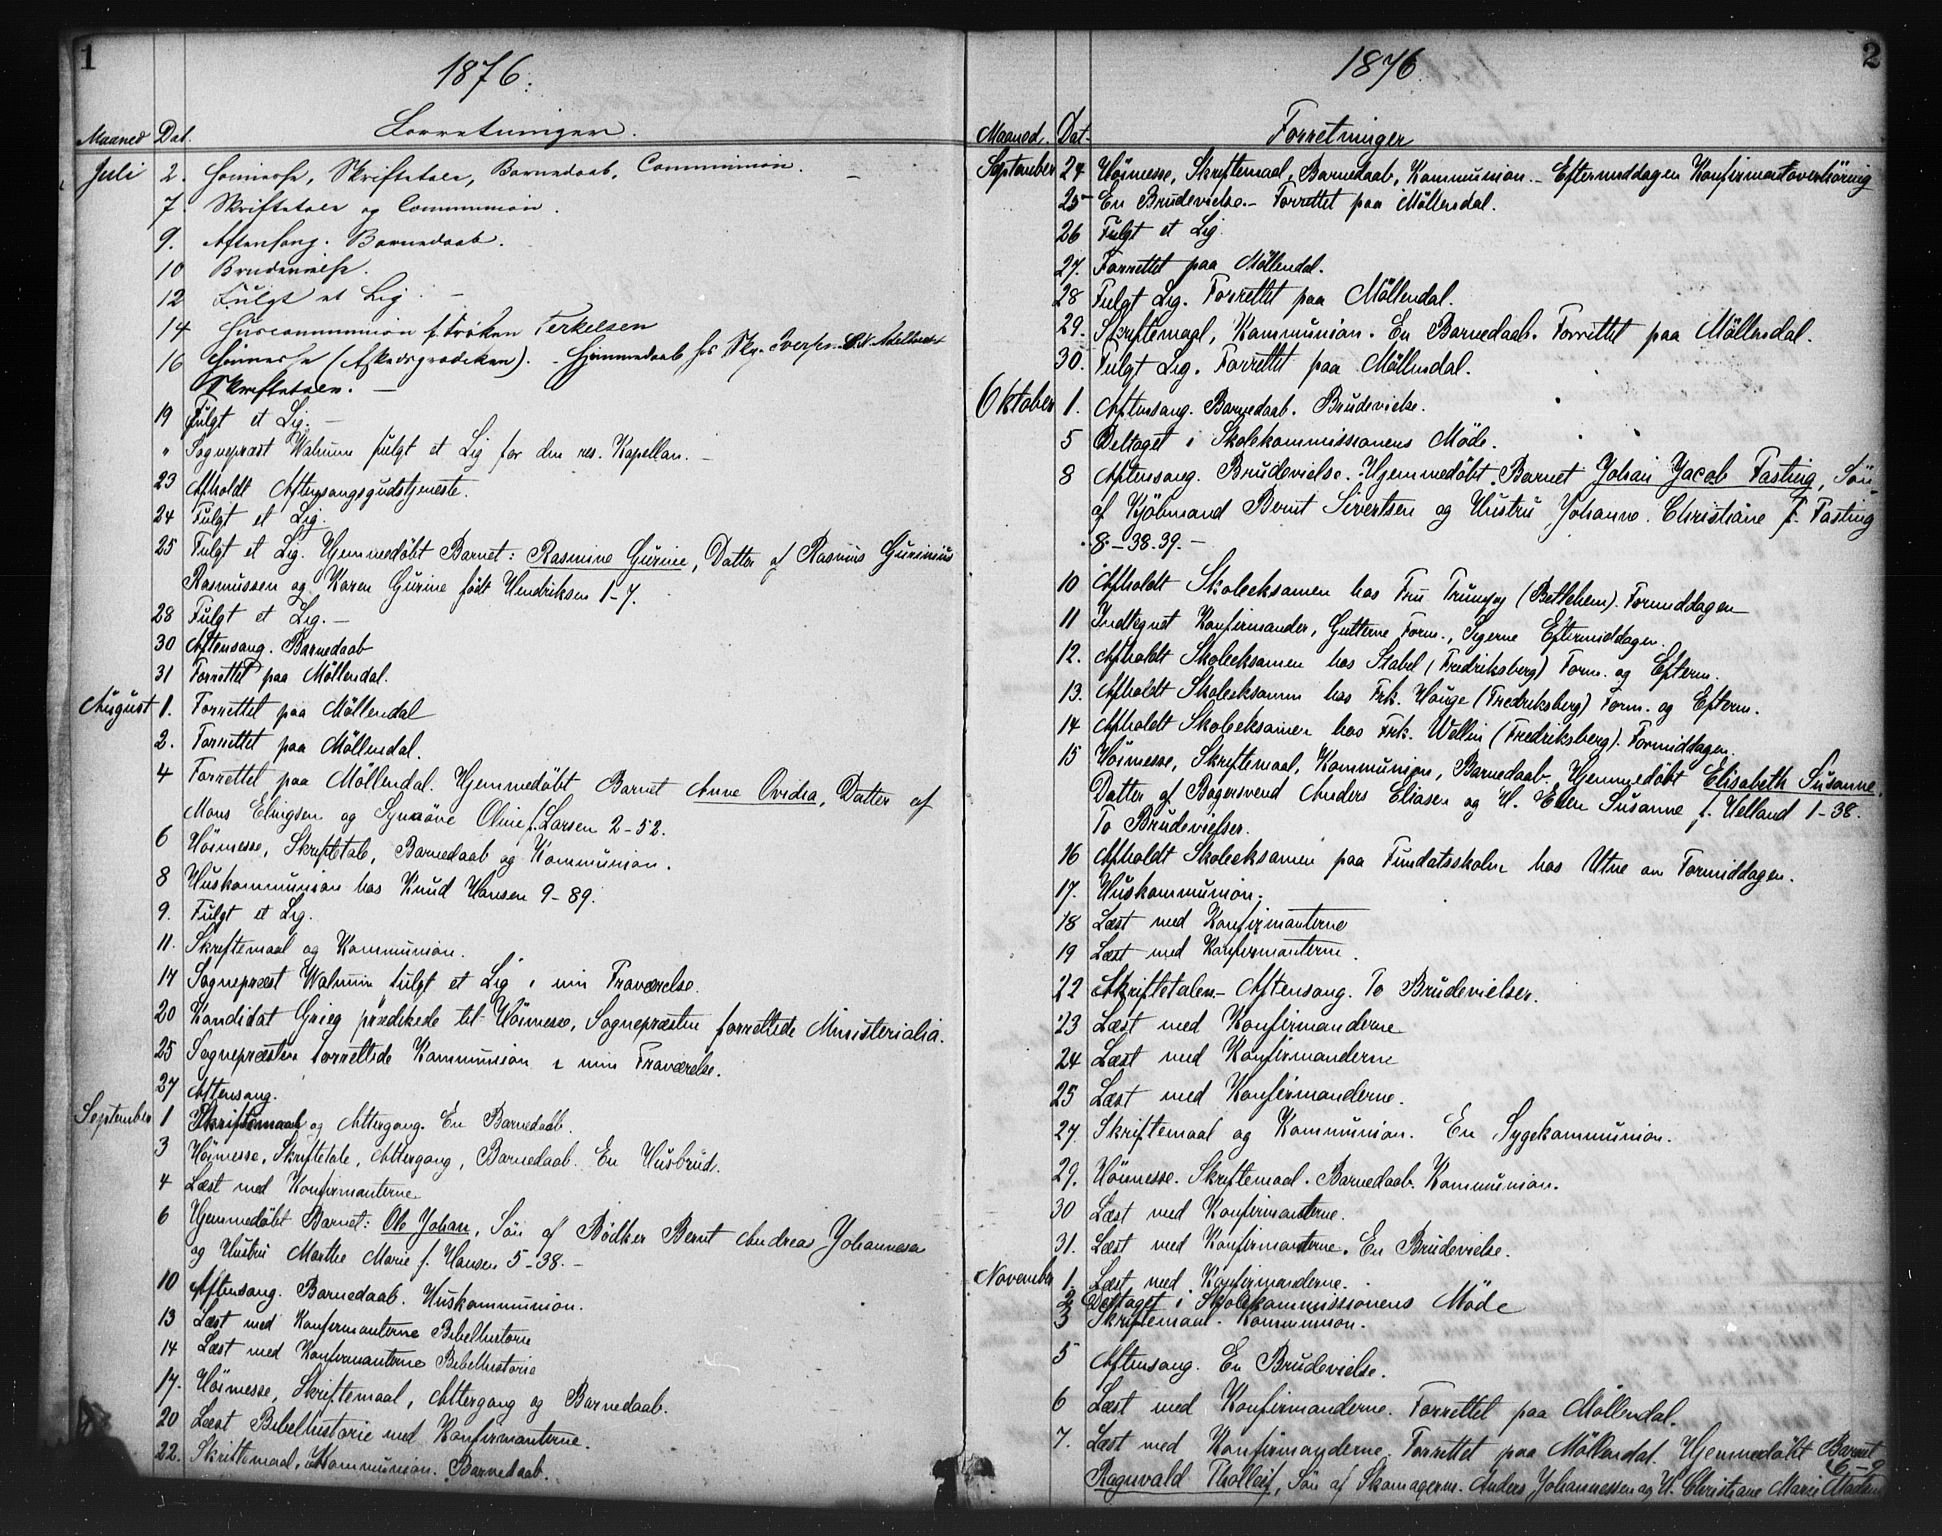 1
1876.
Maaned Dat. Forretninger.
Juli 2. Höimesse, Skriftetale, Barnedaab, Communion.
7. Skriftetale og Communion.
9. Aftensang. Barnedaab.
10 Brudevielse.
12 Fulgt et Lig. –
14 Huscommunion f. Fröken Terkelsen
16 Höimesse (Afskedsprædiken). – Hjemmedaab hos
Skriftetale. –
19 Fulgt et Lig. –
" Sognepræst Walnum fulgt et Lig for den res. Kapellan. –
23 Afholdt Aftensangsgudstjeneste.
24 Fulgt et Lig.
25 Fulgt et Lig. Hjemmedöbt Barnet: Rasmine Gurine, Datter af Rasmus Gurinius
Rasmussen og Karen Gurine födt Hendriksen 1-7.
28 Fulgt et Lig. –
30 Aftensang. Barnedaab
31 Forrettet paa Möllendal.
August 1. Forrettet paa Möllendal
2. Forrettet paa Möllendal.
4 Forrettet paa Möllendal. Hjemmedöbt Barnet Anne Ovidia, Datter af
Mons Elingsen og Synnöve Oline f. Larsen 2-52.
6 Höimesse, Skriftetale, Barnedaab og Kommunion.
8 Huskommunion hos Knud Hansen 9-89.
9. Fulgt et Lig.
11. Skriftemaal og Kommunion.
17 Sognepræst Walnum fulgt et Lig i min Fraværelse.
20 Kandidat Grieg prædikede til Höimesse, Sognepræsten forrettede Ministerialia.
25 Sognepræsten forrettede Kommunion i min Fraværelse.
27 Aftensang.
September 1 Skriftemaal og Altergang. En Barnedaab.
3 Höimesse, Skriftetale, Altergang, Barnedaab. En Husbrud.
4 Læst med Konfirmanterne
6 Hjemmedöbt Barnet: Ole Johan, Sön af Bödker Bernt Andreas Johannesen
og Hustru Marthe Marie f. Hansen 5-38. –
10 Aftensang. Barnedaab. Huskommunion.
13 Læst med Konfirmanterne Bibelhistorie
14 Læst med Konfirmanterne Bibelhistorie
17. Höimesse, Skriftemaal, Altergang og Barnedaab.
20 Læst Bibelhistorie med Konfirmanterne.
22. Skriftemaal, Kommunion. Barnedaab.
2
1876
Maaned. Dat. Forretninger
September 24 Höimesse, Skriftemaal, Barnedaab, Kommunion. – Eftermiddagen Konfirmantoverhöring
25 En Brudevielse. – Forrettet paa Möllendal.
26 Fulgt et Lig
27. Forrettet paa Möllendal.
28 Fulgt Lig. Forrettet paa Möllendal.
29. Skriftemaal, Kommunion. En Barnedaab. Forrettet paa Möllendal.
30. Fulgt Lig. Forrettet paa Möllendal.
Oktober 1. Aftensang. Barnedaab. Brudevielse.
5 Deltaget i Skolekommissionens Möde.
8 Aftensang. Brudevielse. Hjemmedöbt Barnet Johan Jacob Fasting, Sön
af Kjöbmand Bernt Sivertsen og Hustru Johanne Christiane f. Fasting
8-38.39. –
10 Afholdt Skoleeksamen hos Fru (Bethlehem). Formiddagen
11 Indtegnet Konfirmander, Gutterne Form., Pigerne Eftermiddagen.
12. Afholdt Skoleeksamen hos Stabel (Fredriksberg) Form. og Efterm.
13. Afholdt Skoleeksamen hos Frk. Hauge (Fredriksberg) Form. og Efterm.
14 Afholdt Skoleeksamen hos Frk. Wellin (Fredriksberg). Formiddagen.
15 Höimesse, Skriftemaal, Kommunion, Barnedaab. Hjemmedöbt Elisabeth Susanne,
Datter af Bagersvend Anders Eliasen og H. Ellen Susanne f. Helland 1-38.
To Brudevielser.
16 Afholdt Skoleeksamen paa Fundatsskolen hos Utne om Formiddagen.
17. Huskommunion.
18 Læst med Konfirmanterne
19 Læst med Konfirmanterne.
22 Skriftetalen – Aftensang. To Brudevielser.
23 Læst med Konfirmanderne
24 Læst med Konfirmanderne
25 Læst med Konfirmanderne.
27. Skriftemaal og Kommunion. En Sygekommunion.
29. Höimesse. Skriftemaal. Barnedaab. Kommunion.
30 Læst med Konfirmanterne.
31. Læst med Konfirmanterne. En Brudevielse.
November 1. Læst med Konfirmanderne.
2 Deltaget i Skolekommissionens Möde
3 Skriftemaal. Kommunion.
5 Aftensang. En Brudevielse.
6 Læst med Konfirmanderne. Forrettet paa Möllendal.
7. Læst med Konfirmanderne. Forrettet paa Möllendal. Hjemmedöbt Barnet
Ragnvald Tholleif, Sön af Skomagerm. Anders Johannessen og H. Christiane Marie Madsen 6-9